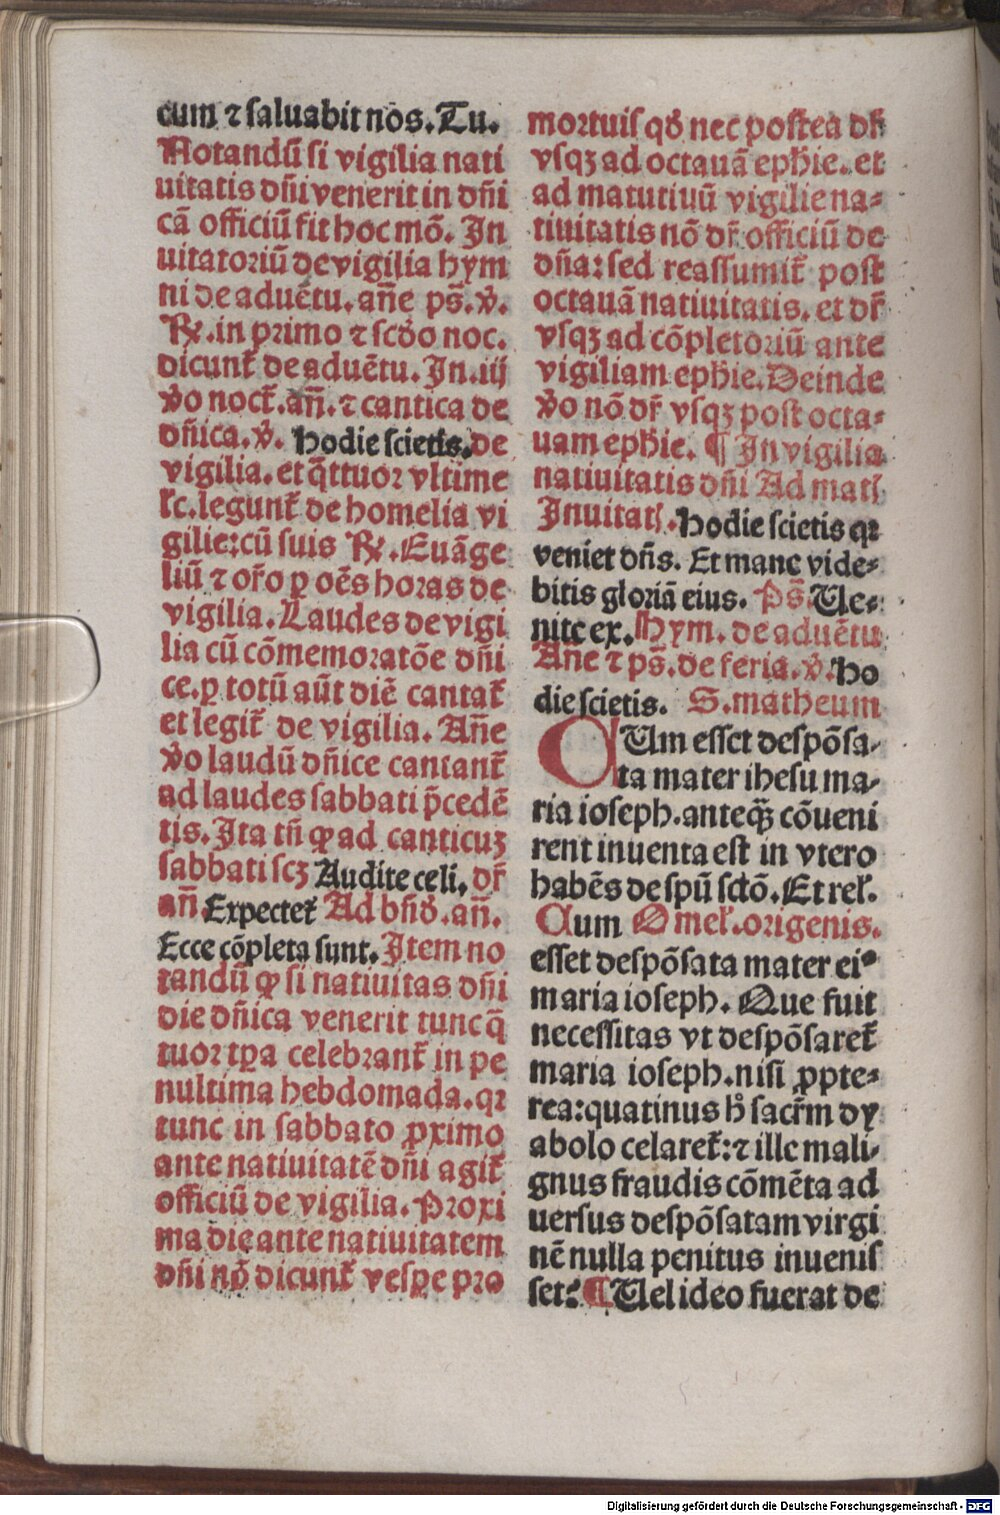 cum ⁊ saluabit nos. Tu.
Notandū si vigilia nati
uitatis dñi venerit in dñi
cā officiū fit hoc mō. In
uitatoriū de vigilia hym
ni de aduētu. añe ps̄. v̾.
R̷. in primo ⁊ scd̾o noc.
dicunt᷑ de aduētu. In .iij
v̾o noct᷑. añ. ⁊ cantica de
dñica. v̾. Hodie scietis. de
vigilia. et q̄ttuor vltime
lc̄. legunt᷑ de homelia vi
gilie: cū suis R̷. Euāge
liū ⁊ or̄o ꝑ oēs horas de
vigilia. Laudes de vigi
lia cū cōmemoratōe dñi
ce. ꝑ totū aūt diē cantat᷑
et legit᷑ de vigilia. Añe
v̾o laudū dñice cantant᷑
ad laudes sabbati p̄cedē
tis. Ita tñ ꝙ ad canticuꝫ
sabbati scꝫ Audite celi. dr̄
añ. Expectet᷑ Ad bñd̾. añ.
Ecce cōpleta sunt. Item no
tandū ꝙ si natiuitas dñi
die dñica venerit tunc q̄
tuor tꝑa celebrant᷑ in pe
nultima hebdomada. qꝛ
tunc in sabbato ꝓximo
ante natiuitatē dñi agit᷑
officiū de vigilia. Proxi
ma die ante natiuitatem
dñi nō dicunt᷑ vespe pro
mortuis qd̾ nec postea dr̄
vsqꝫ ad octauā eph̄ie. et
ad matutinū vigilie na⸗
tiuitatis nō dr̄ officiū de
dña: sed reassumit᷑ post
octauā natiuitatis. et dr̄
vsqꝫ ad cōpletoriū ante
vigiliam eph̄ie. Deinde
v̾o nō dr̄ vsqꝫ post octa⸗
uam eph̄ie. ¶ In vigilia
natiuitatis dñi Ad matꝭ
Inuitatꝭ. Hodie scietis qꝛ
veniet dñs. Et mane vide⸗
bitis gloriā eius. Ps̄. Ue⸗
nite ex. Hym. de aduētu
Añe ⁊ ps̄. de feria. v̾. Ho
die scietis. S. matheum
CUm esset despōsa⸗
ta mater ihesu ma⸗
ria ioseph. anteq̄ꝫ cōueni
rent inuenta est in vtero
habēs de spū sctō. Et rel̾.
Cum Omel̾. origenis.
esset despōsata mater eiꝰ
maria ioseph. Que fuit
necessitas vt despōsaret᷑
maria ioseph. nisi ꝓpte⸗
rea: quatinus h̾ sacr̄m dy
abolo celaret᷑: ⁊ ille mali⸗
gnus fraudis cōmēta ad
uersus despōsatam virgi
nē nulla penitus inuenis
set: ¶ Uel ideo fuerat de
Digitalisierung gefördert durch die Deutsche Forschungsgemeinschaft - DFG